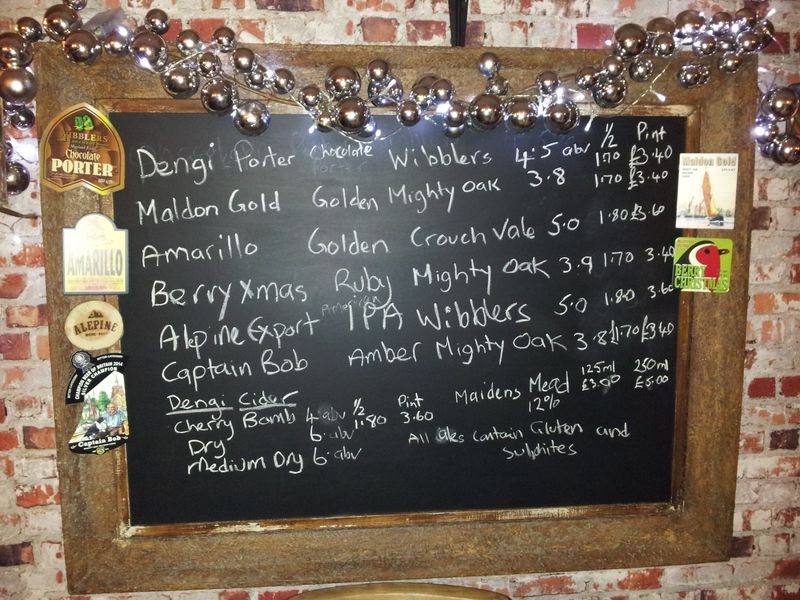 ½ Pint
Dengi Porter Chocolate Wibblers 4.5 abv 1.70 £3.40
Maldon Gold Golden Mighty Oak 3.8 1.70 £3.40
Amarillo Golden Crouch Vale 5.0 1.80 £3.60
Berry Xmas Ruby Mighty Oak 3.9 1.70 3.40
American
Alepine Export IPA Wibblers 5.0 1.80 3.60
Captain Bob Amber Mighty Oak 3.8 £1.70 £3.40
Dengi Cider ½ Pint
Cherry Bomb 4. abv 1.80 3.60
Dry 6. abv
Medium Dry 6. abv
125ml 250ml
Maidens Mead £3.00 £5.00
12%
All ales contain Gluten and
sulphites
WIBBLERS
Chocolate
PORTER
AMARILLO
ALEPINE
SILVER CHAMPION
Captain Bob
Maldon Gold
BERRY
CHRISTMAS